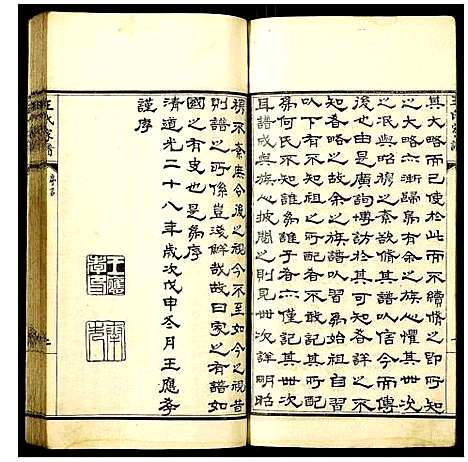 其大略而已使於此而不續脩之即所知
之大略亦漸歸烏有余之族人心懼
之泯與昭穆之紊欲脩其譜以信今而傳
後也由是廣詢博訪於其知者詳之不
知者略之故余之族譜以習爲始祖自習
以下有不知其祖之所配者不敢記其所配
爲何氏不知誰爲誰子者亦僅記其世次
耳譜成與族人披閱之則見世次詳明昭
穆不紊庶令後之視今不至如今之視昔
則譜之所係豈淺鮮哉故曰家之有譜如
國之有史也是爲序
清道光二十八年歲次戊申冬月王應孝
謹序
王氏家譜
序言
王應孝印